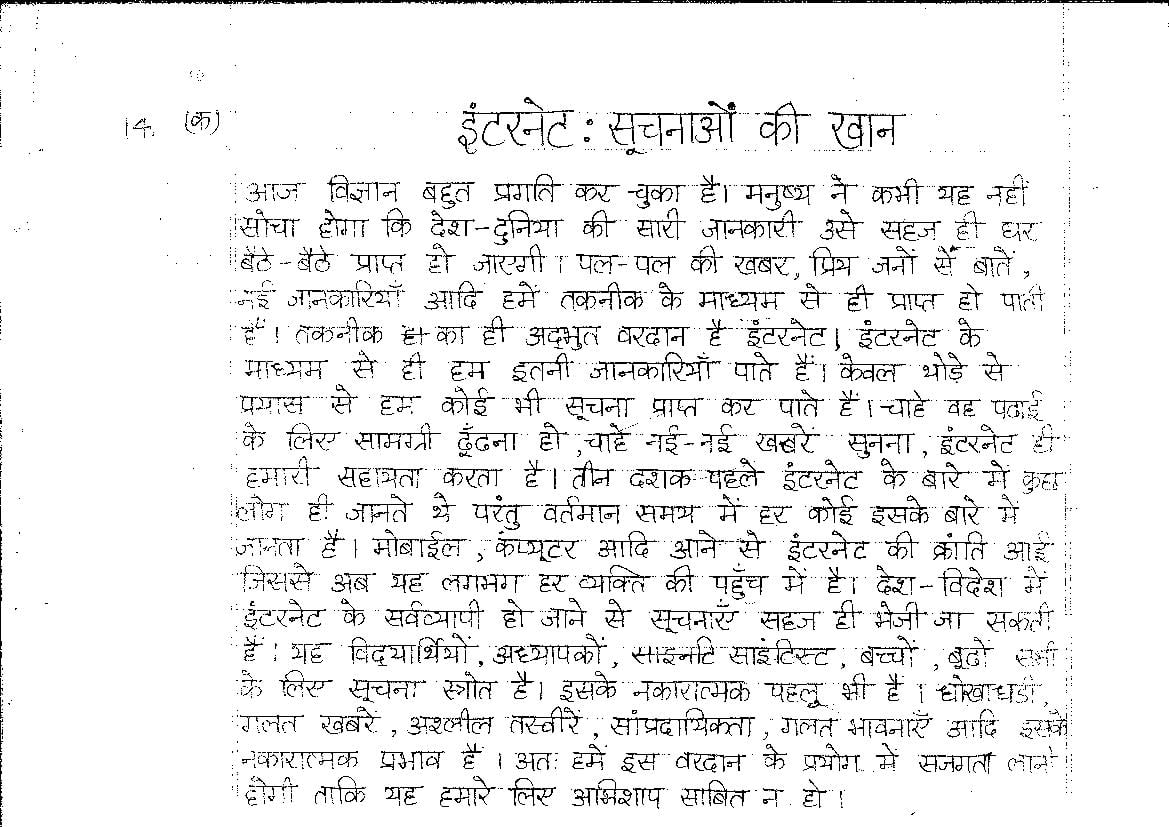 14. (क) इंटरनेट : सूचनाओं की खान
आज विज्ञान बहुत प्रगति कर चुका है। मनुष्य ने कभी यह नहीं
सोचा होगा कि देश-दुनिया की सारी जानकारी उसे सहज ही घर
बैठे-बैठे प्राप्त हो जाएगी। पल-पल की खबर, प्रिय जनों सें बाते,
नई जानकारियाँ आदि हमें तकनीक के माध्यम से ही प्राप्त हो पाती
हैं। तकनीक का ही अद्भुत वरदान है इंटरनेट। इंटरनेट के
माध्यम से ही हम इतनी जानकारियाँ पाते हैं। केवल थोड़े से
प्रयास से हम कोई भी सूचना प्राप्त कर पाते हैं। चाहे वह पढाई
के लिए सामग्री ढूँढना हो, चाहे नई-नई खबरें सुनना, इंटरनेट ही
हमारी सहायता करता है। तीन दशक पहले इंटरनेट के बारे मे कुछ
लोग ही जानते थे परंतु वर्तमान समय में हर कोई इसके बारे में
जानता है। मोबाईल, कंप्यूटर आदि आने से इंटरनेट की क्रांति आई
जिससे अब यह लगभग हर व्यक्ति की पहुँच में है। देश-विदेश में
इंटरनेट के सर्वव्यापी हो जाने से सूचनाएँ सहज ही भेजी जा सकती
हैं। यह विद्यार्थियों, अध्यापकों, साइंटिस्ट, बच्चों, बूढों सभी
के लिए सूचना स्त्रोत है। इसके नकारात्मक पहलू भी हैं। धोखाधडी,
गलत खबरें, अश्लील तस्वीरें, सांप्रदायिकता, गलत भावनाएँ आदि इसके
नकारात्मक प्रभाव हैं। अतः हमें इस वरदान के प्रयोग में सजगता लानी
होगी ताकि यह हमारे लिए अभिशाप साबित न हो।